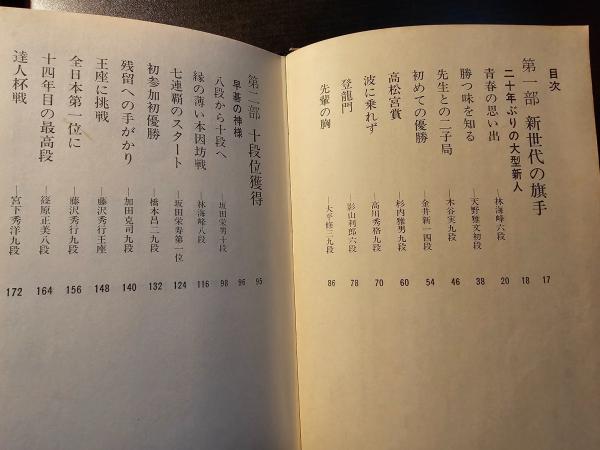 目次
第一部 新世代の旗手 17
二十年ぶりの大型新人 18
青春の思い出 ―林海峰六段 20
勝つ味を知る ―天野雅文初段 38
先生との二子局 ―木谷実九段 46
初めての優勝 ―金井新一四段 54
高松宮賞 ―杉内雅男九段 60
波に乗れず ―高川秀格九段 70
登龍門 ―影山利郎六段 78
先輩の胸 ―大平修三九段 86
第二部 十段位獲得 95
早碁の神様 96
八段から十段へ ―坂田栄男十段 98
縁の薄い本因坊戦 ―林海峰八段 116
七連覇のスタート ―坂田栄寿第一位 124
初参加初優勝 ―橋本昌二九段 132
残留への手がかり ―加田克司九段 140
王座に挑戦 ―藤沢秀行王座 148
全日本第一位に ―藤沢秀行九段 156
十四年目の最高段 ―篠原正美八段 164
達人杯戦 ―宮下秀洋九段 172